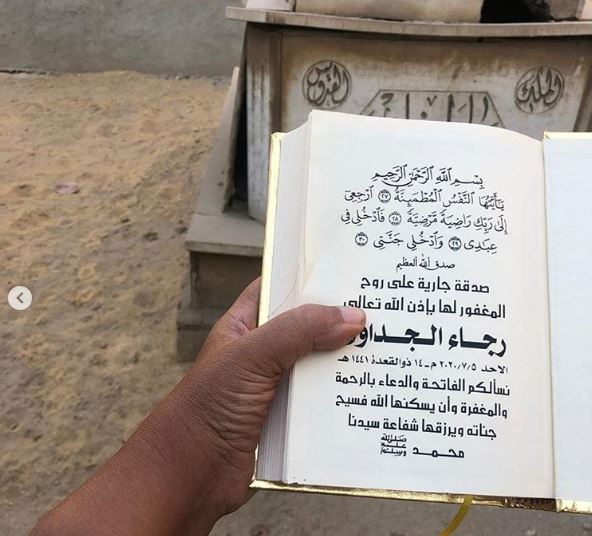 القدوس
الملك
بِسْمِ ٱللَّهِ ٱلرَّحْمَٰنِ ٱلرَّحِيمِ
يَٰٓأَيَّتُهَا ٱلنَّفْسُ ٱلْمُطْمَئِنَّةُ ٢٧ ٱرْجِعِىٓ
إِلَىٰ رَبِّكِ رَاضِيَةً مَّرْضِيَّةً ٢٨ فَٱدْخُلِى فِى
عِبَٰدِى ٢٩ وَٱدْخُلِى جَنَّتِى ٣٠
صدق الله العظيم
صدقة جارية على روح
المغفور لها بإذن الله تعالى
رجاء الجداو
الاحد ٢٠٢٠/٧/٥ م - ١٤ ذوالقعدة ١٤٤١ هـ
نسألكم الفاتحة والدعاء بالرحمة
والمغفرة وأن يسكنها الله فسيح
جناته ويرزقها شفاعة سيدنا
محمد صلى الله عليه وسلم